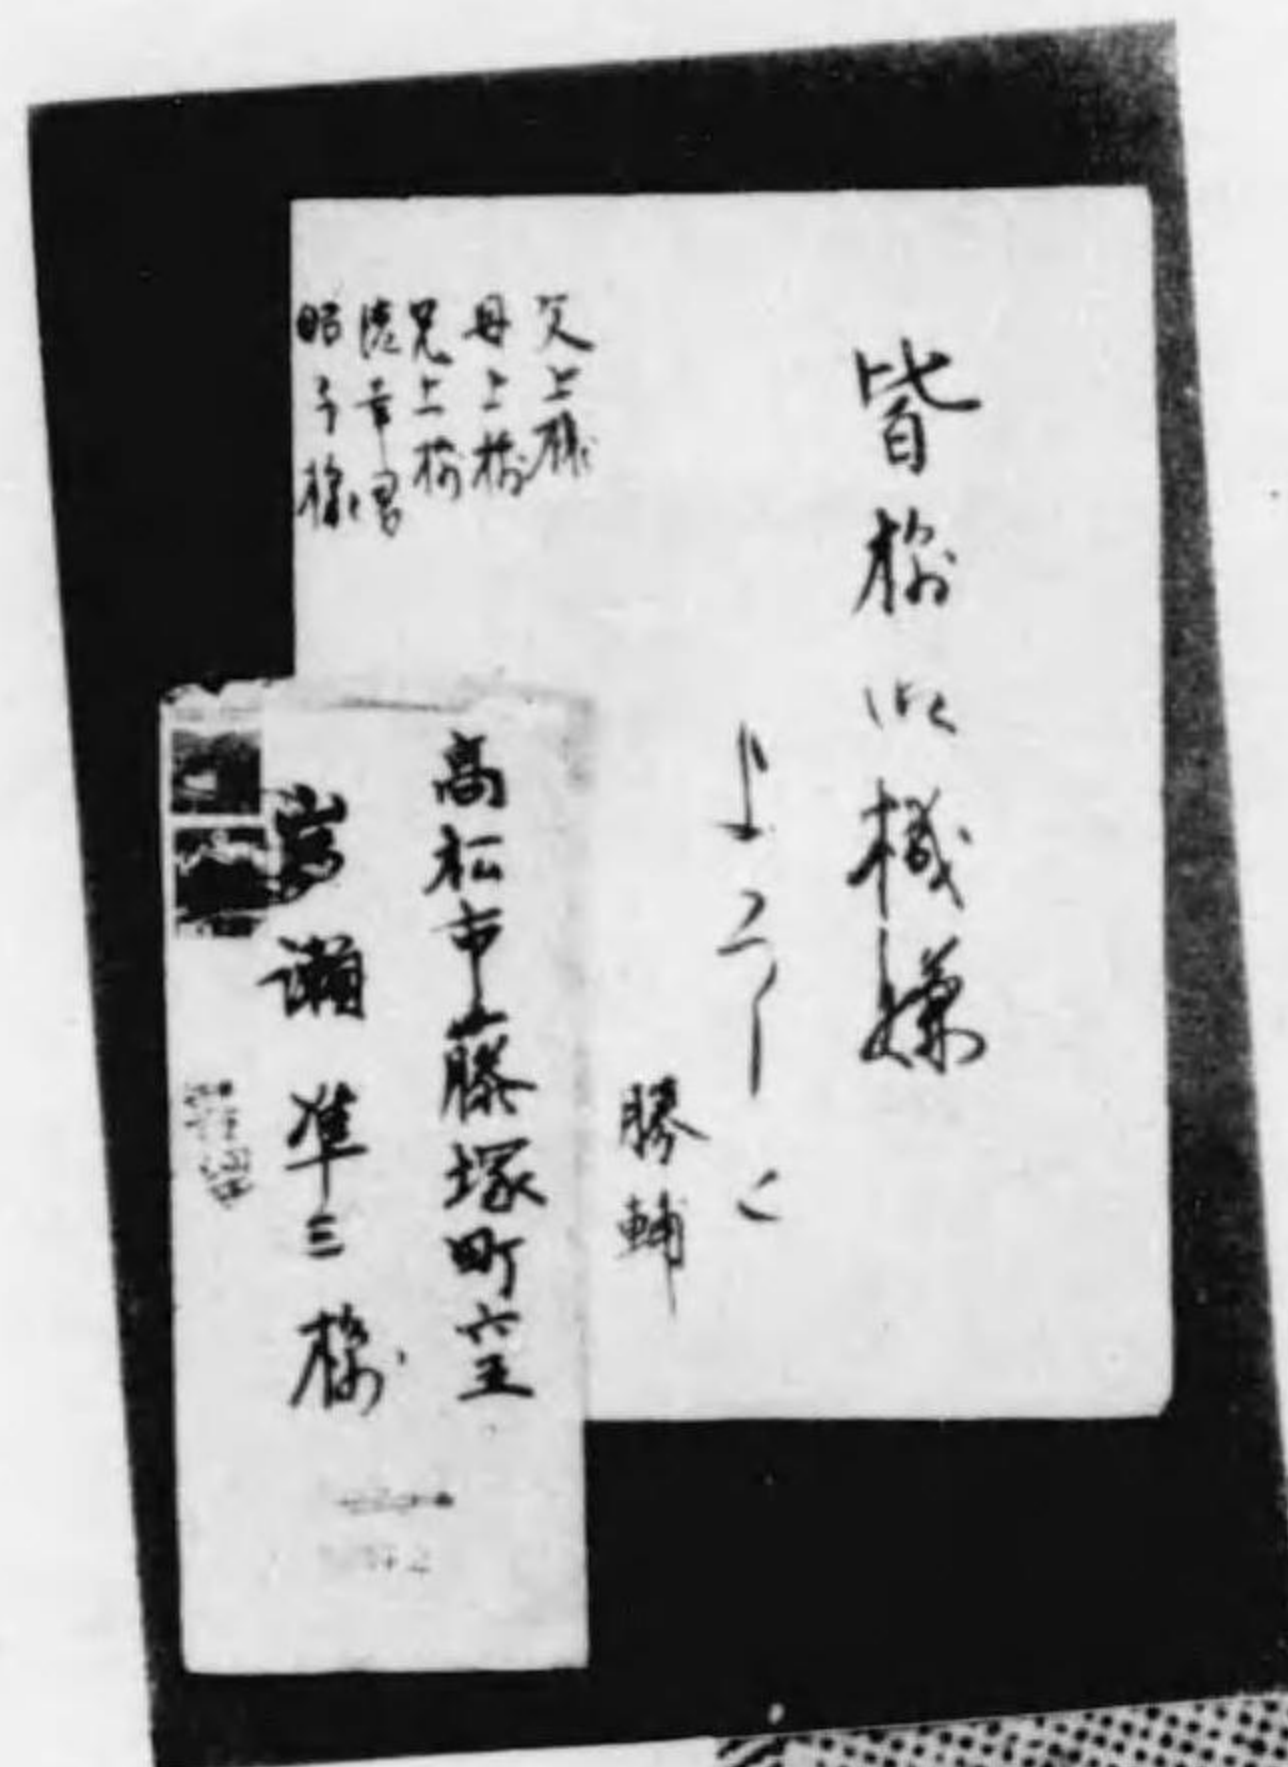 皆様御機嫌
よろしく
勝輔
父上様
母上様
兄上様
徳幸君
昭子様
高松市藤塚町六五
岩瀬準三様
書留